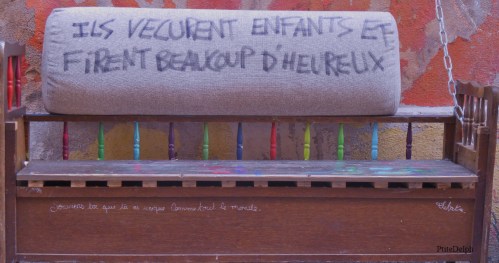 ILS VECURENT ENFANTS ET
FIRENT BEAUCOUP D'HEUREUX
que tu comme tout le monde.
PuteDelph